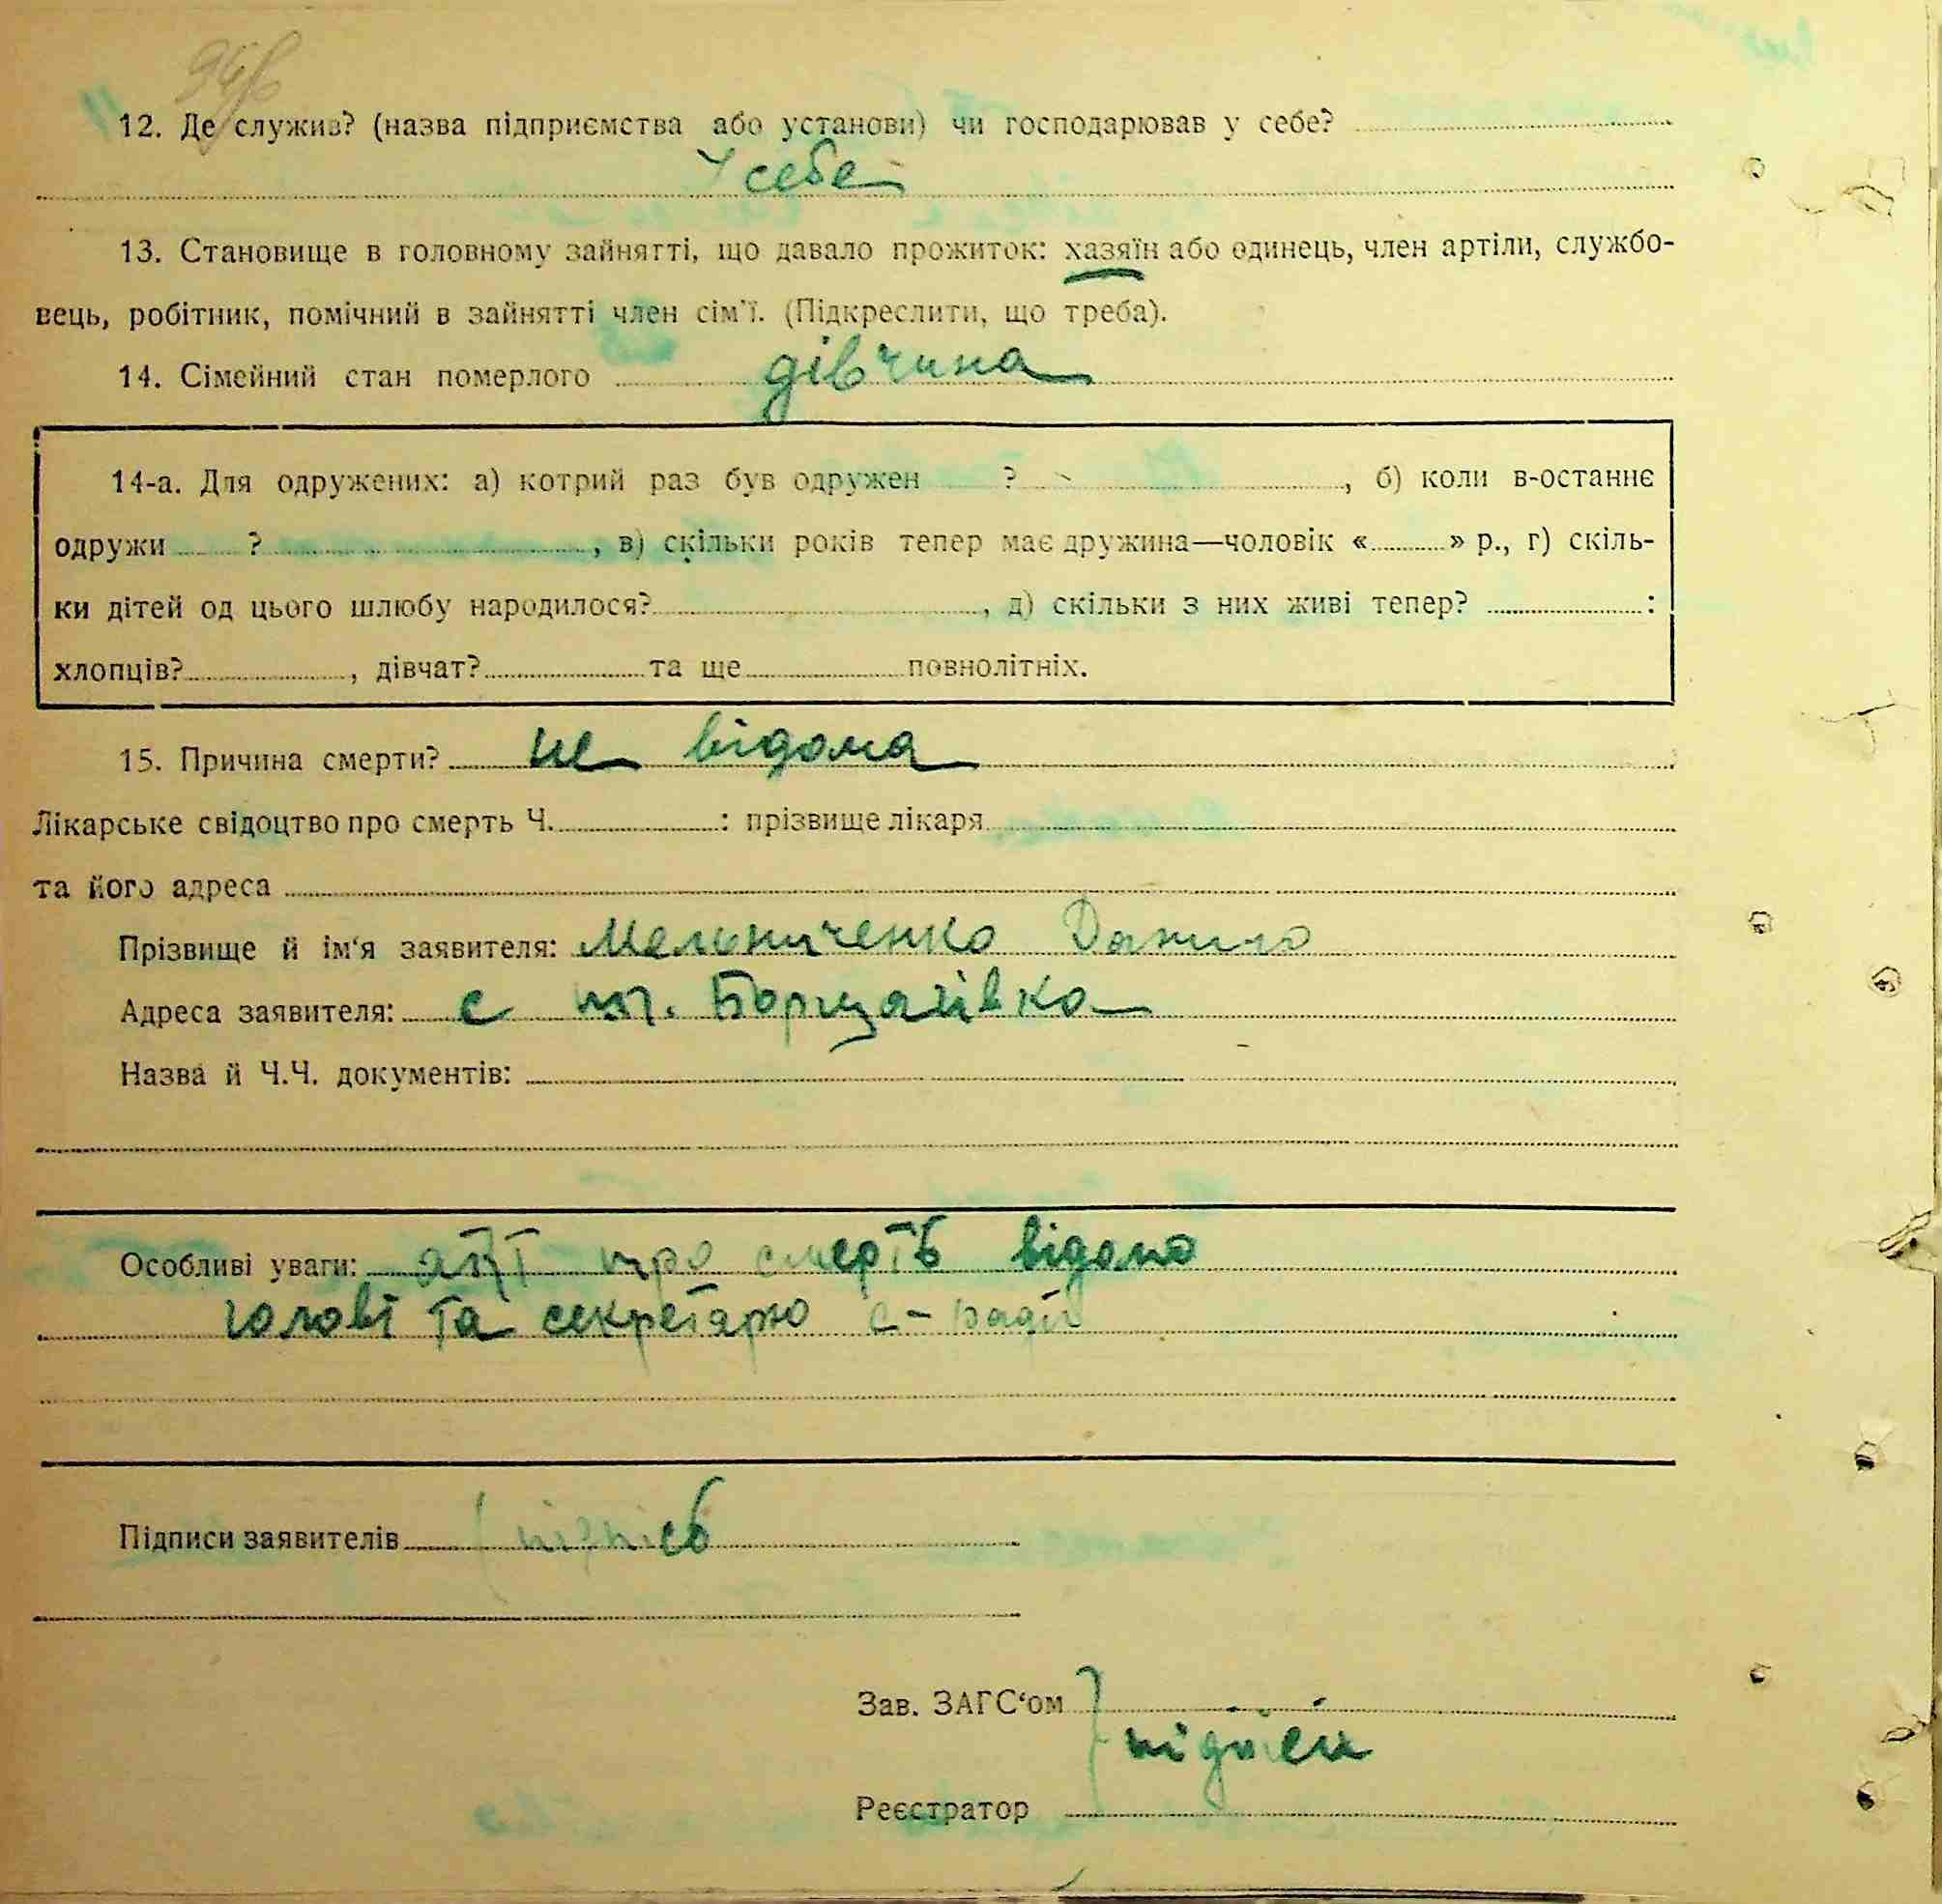 12. Де служив? (назва підприємства або установи) чи господарював у себе?
У себе
13. Становище в головному зайнятті, що давало прожиток: хазяїн або одинець, член артіли, службо-
вець, робітник, помічний в зайнятті член сім'ї. (Підкреслити, що треба).
14. Сімейний стан померлого дівчина
14-а. Для одружених: а) котрий раз був одружен ? , б) коли в-останнє
одружи ? , в) скільки років тепер має дружина—чоловік « » р., г) скіль-
ки дітей од цього шлюбу народилося? , д) скільки з них живі тепер? :
хлопців? , дівчат? та ще повнолітніх.
15. Причина смерти? не відома
Лікарське свідоцтво про смерть Ч. : прізвище лікаря
та його адреса
Прізвище й ім'я заявителя: Мельниченко Данило
Адреса заявителя: с Борщагівка
Назва й Ч.Ч. документів:
Особливі уваги: акт про смерть відомо
голові та секретарю с-ради
Підписи заявителів підпись
Зав. ЗАГС'ом
підписи
Реєстратор